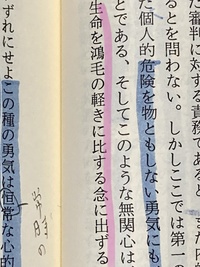 た審判に対する責務であると、また内
るとを問わない。しかしここでは第一
た個人的危険を物ともしない勇気にも
とである、そしてこのような無関心は
生命を鴻毛の軽きに比する念に出ずる
ずれにせよこの種の勇気は恒常な心的